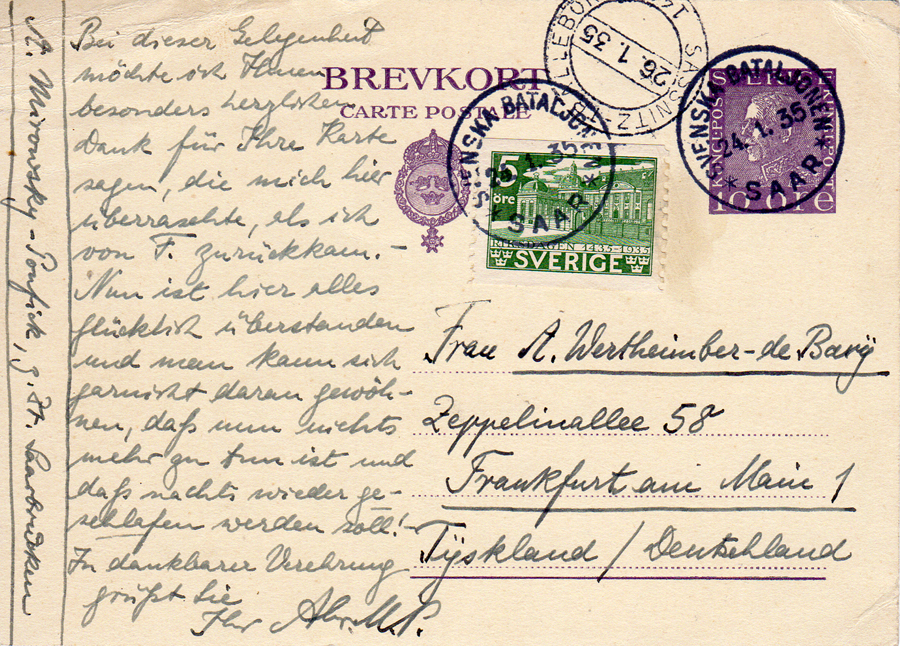 Bei dieser Gelegenheit
möchte ich Ihnen
besonders herzlichen
Dank für Ihre Karte
sagen, die mich hier
überraschte, als ich
von F. zurückkam. -
Nun ist hier alles
glücklich überstanden
und man kann sich
garnicht daran gewöh-
nen, daß nun nichts
mehr zu tun ist und
daß nachts wieder ge-
schlafen werden soll! -
In dankbarer Verehrung
grüßt Sie
Ihr
A. Mironsky-Ponfick, z. Zt. Saarbrücken
BREVKORT
CARTE POSTALE
SVENSKA BATALJONEN
24. 1. 35
* SAAR *
5
öre
RIKSDAGEN 1435-1935
SVERIGE
SASSNITZ-
26.1.35
SVENSKA BATALJONEN
24. 1. 35
* SAAR *
10 öre
Frau A. Wertheimber-de Bary
Zeppelinallee 58
Frankfurt am Main 1
Tyskland / Deutschland